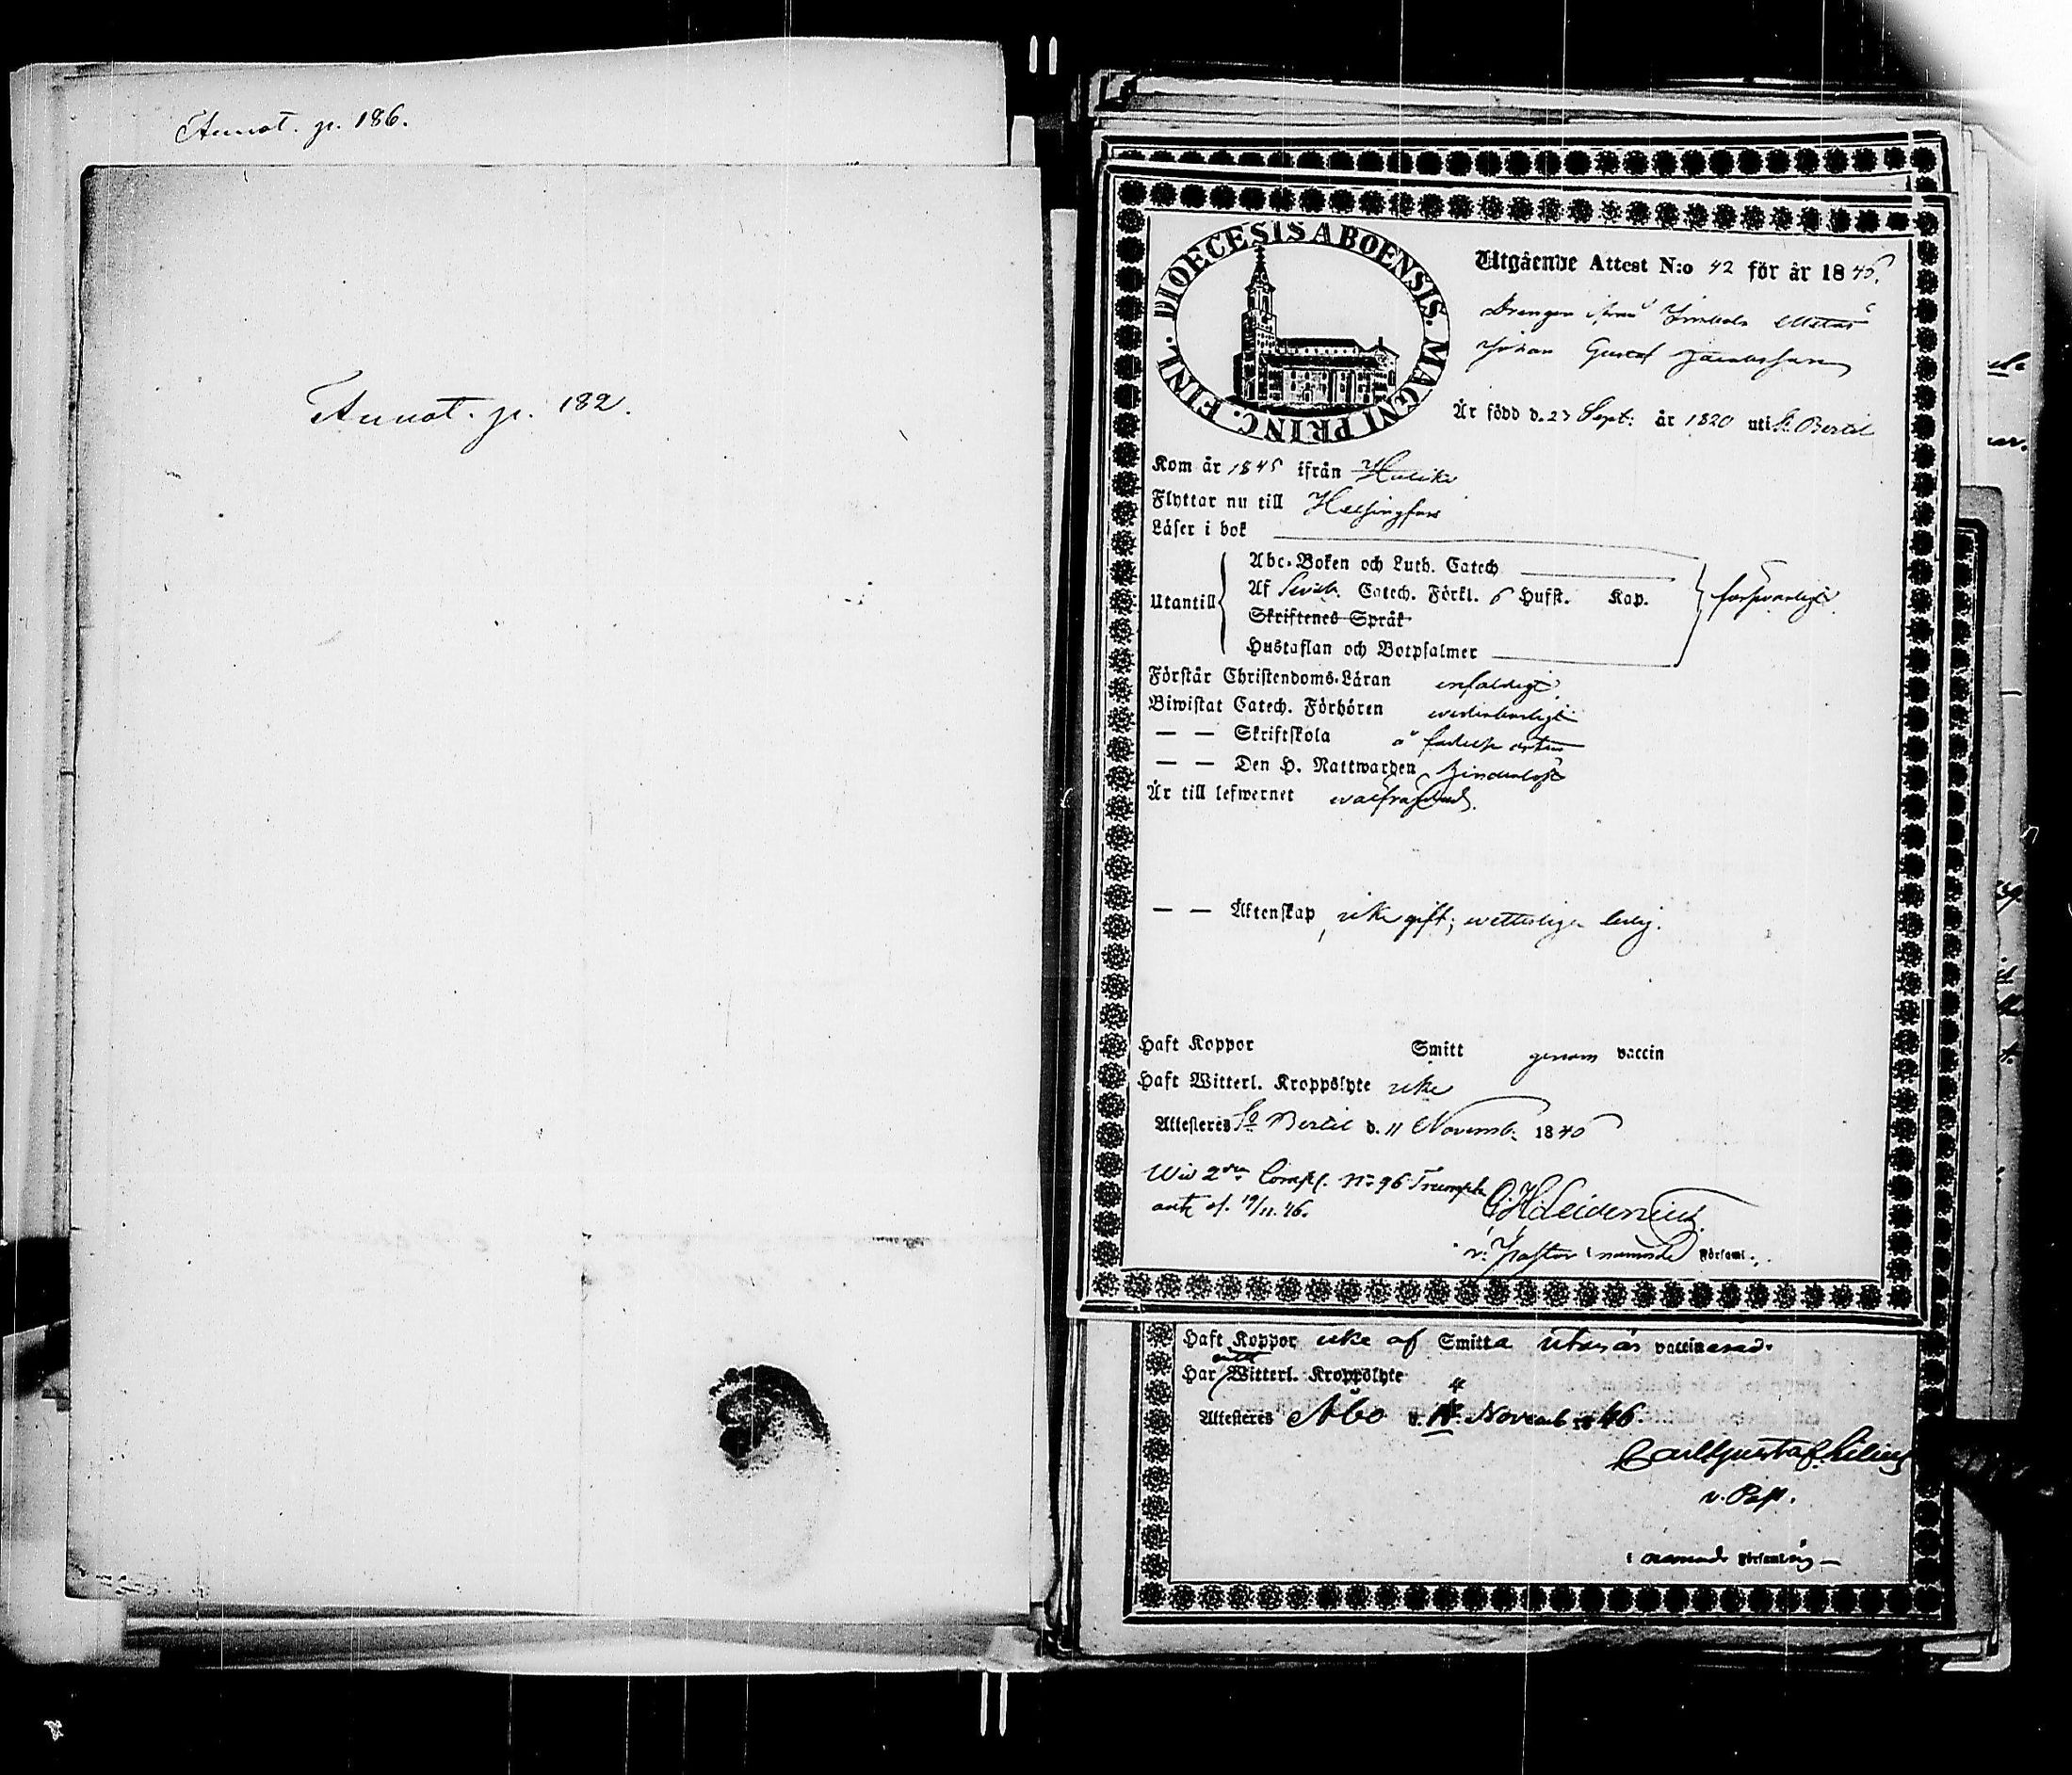 Annot. p. 186.
Annot. p. 182.
DIOECESIS ABOENSIS. MAGNI PRINC. FINL.
Utgående Attest N:o 42 för år 1846.
Drengen från
Johan Gustaf Jacobsson
Är född d. 23 Sept: år 1820 uti S:t Bertil
Kom år 1845 ifrån Haliko
Flyttar nu till Helsingfors
Läser i bok
Utantill
Abc-Boken och Luth. Catech
Af Svib. Catech. Förkl. 6 Hufst. Kap.
Skriftenes Språk
Hustaflan och Botpsalmer
försvarligt.
Förstår Christendoms-Läran enfaldigt.
Biwistat Catech. Förhören wederbörligt
— — Skriftskola å
— — Den H. Nattwarden hinderlöst
Är till lefwernet wälfrägdad.
— — Äktenskap, icke gift; wetterligen ledig.
Haft Koppor Smitt genom vaccin
Haft Witterl. Kroppslyte icke
Attesteres S:t Bertil d. 11 Novemb. 1846
Wid 2:dra Comp. N:o 96 Trumpf
ant. d. 19/11. 46.
G. H. Leidenius.
v. Pastor i nämnde Församl.
Haft Koppor icke af Smitta utan är vaccinerad.
Har ett Witterl. Kroppslyte
Attesteres Åbo d. Novemb 1846.
Carl Gustaf
v. Past.
i nämnde Församling —